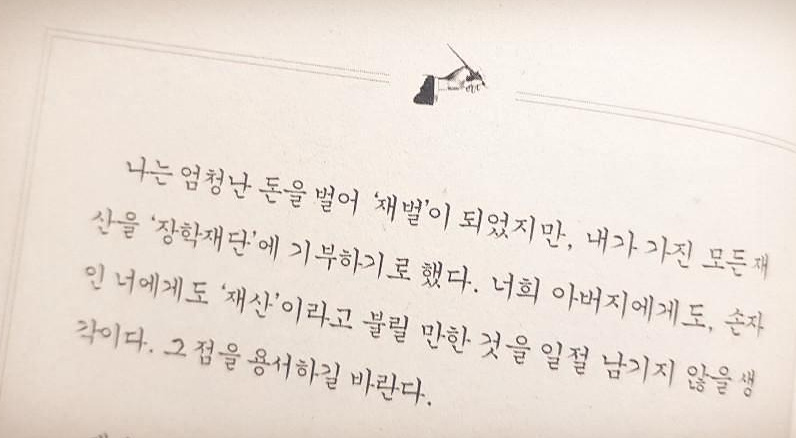 나는 엄청난 돈을 벌어 '재벌'이 되었지만, 내가 가진 모든 재
산을 '장학재단'에 기부하기로 했다. 너희 아버지에게도, 손자
인 너에게도 '재산'이라고 불릴 만한 것을 일절 남기지 않을 생
각이다. 그 점을 용서하길 바란다.